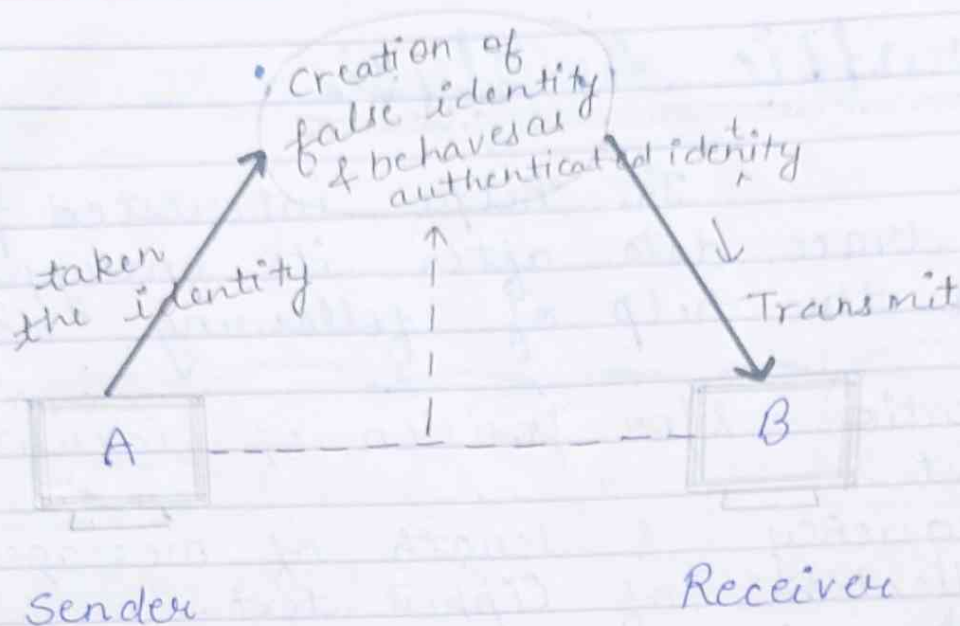 Creation of
false identity
& behaves as
authenticated identity
taken
the identity
Transmit
A
B
Sender
Receiver